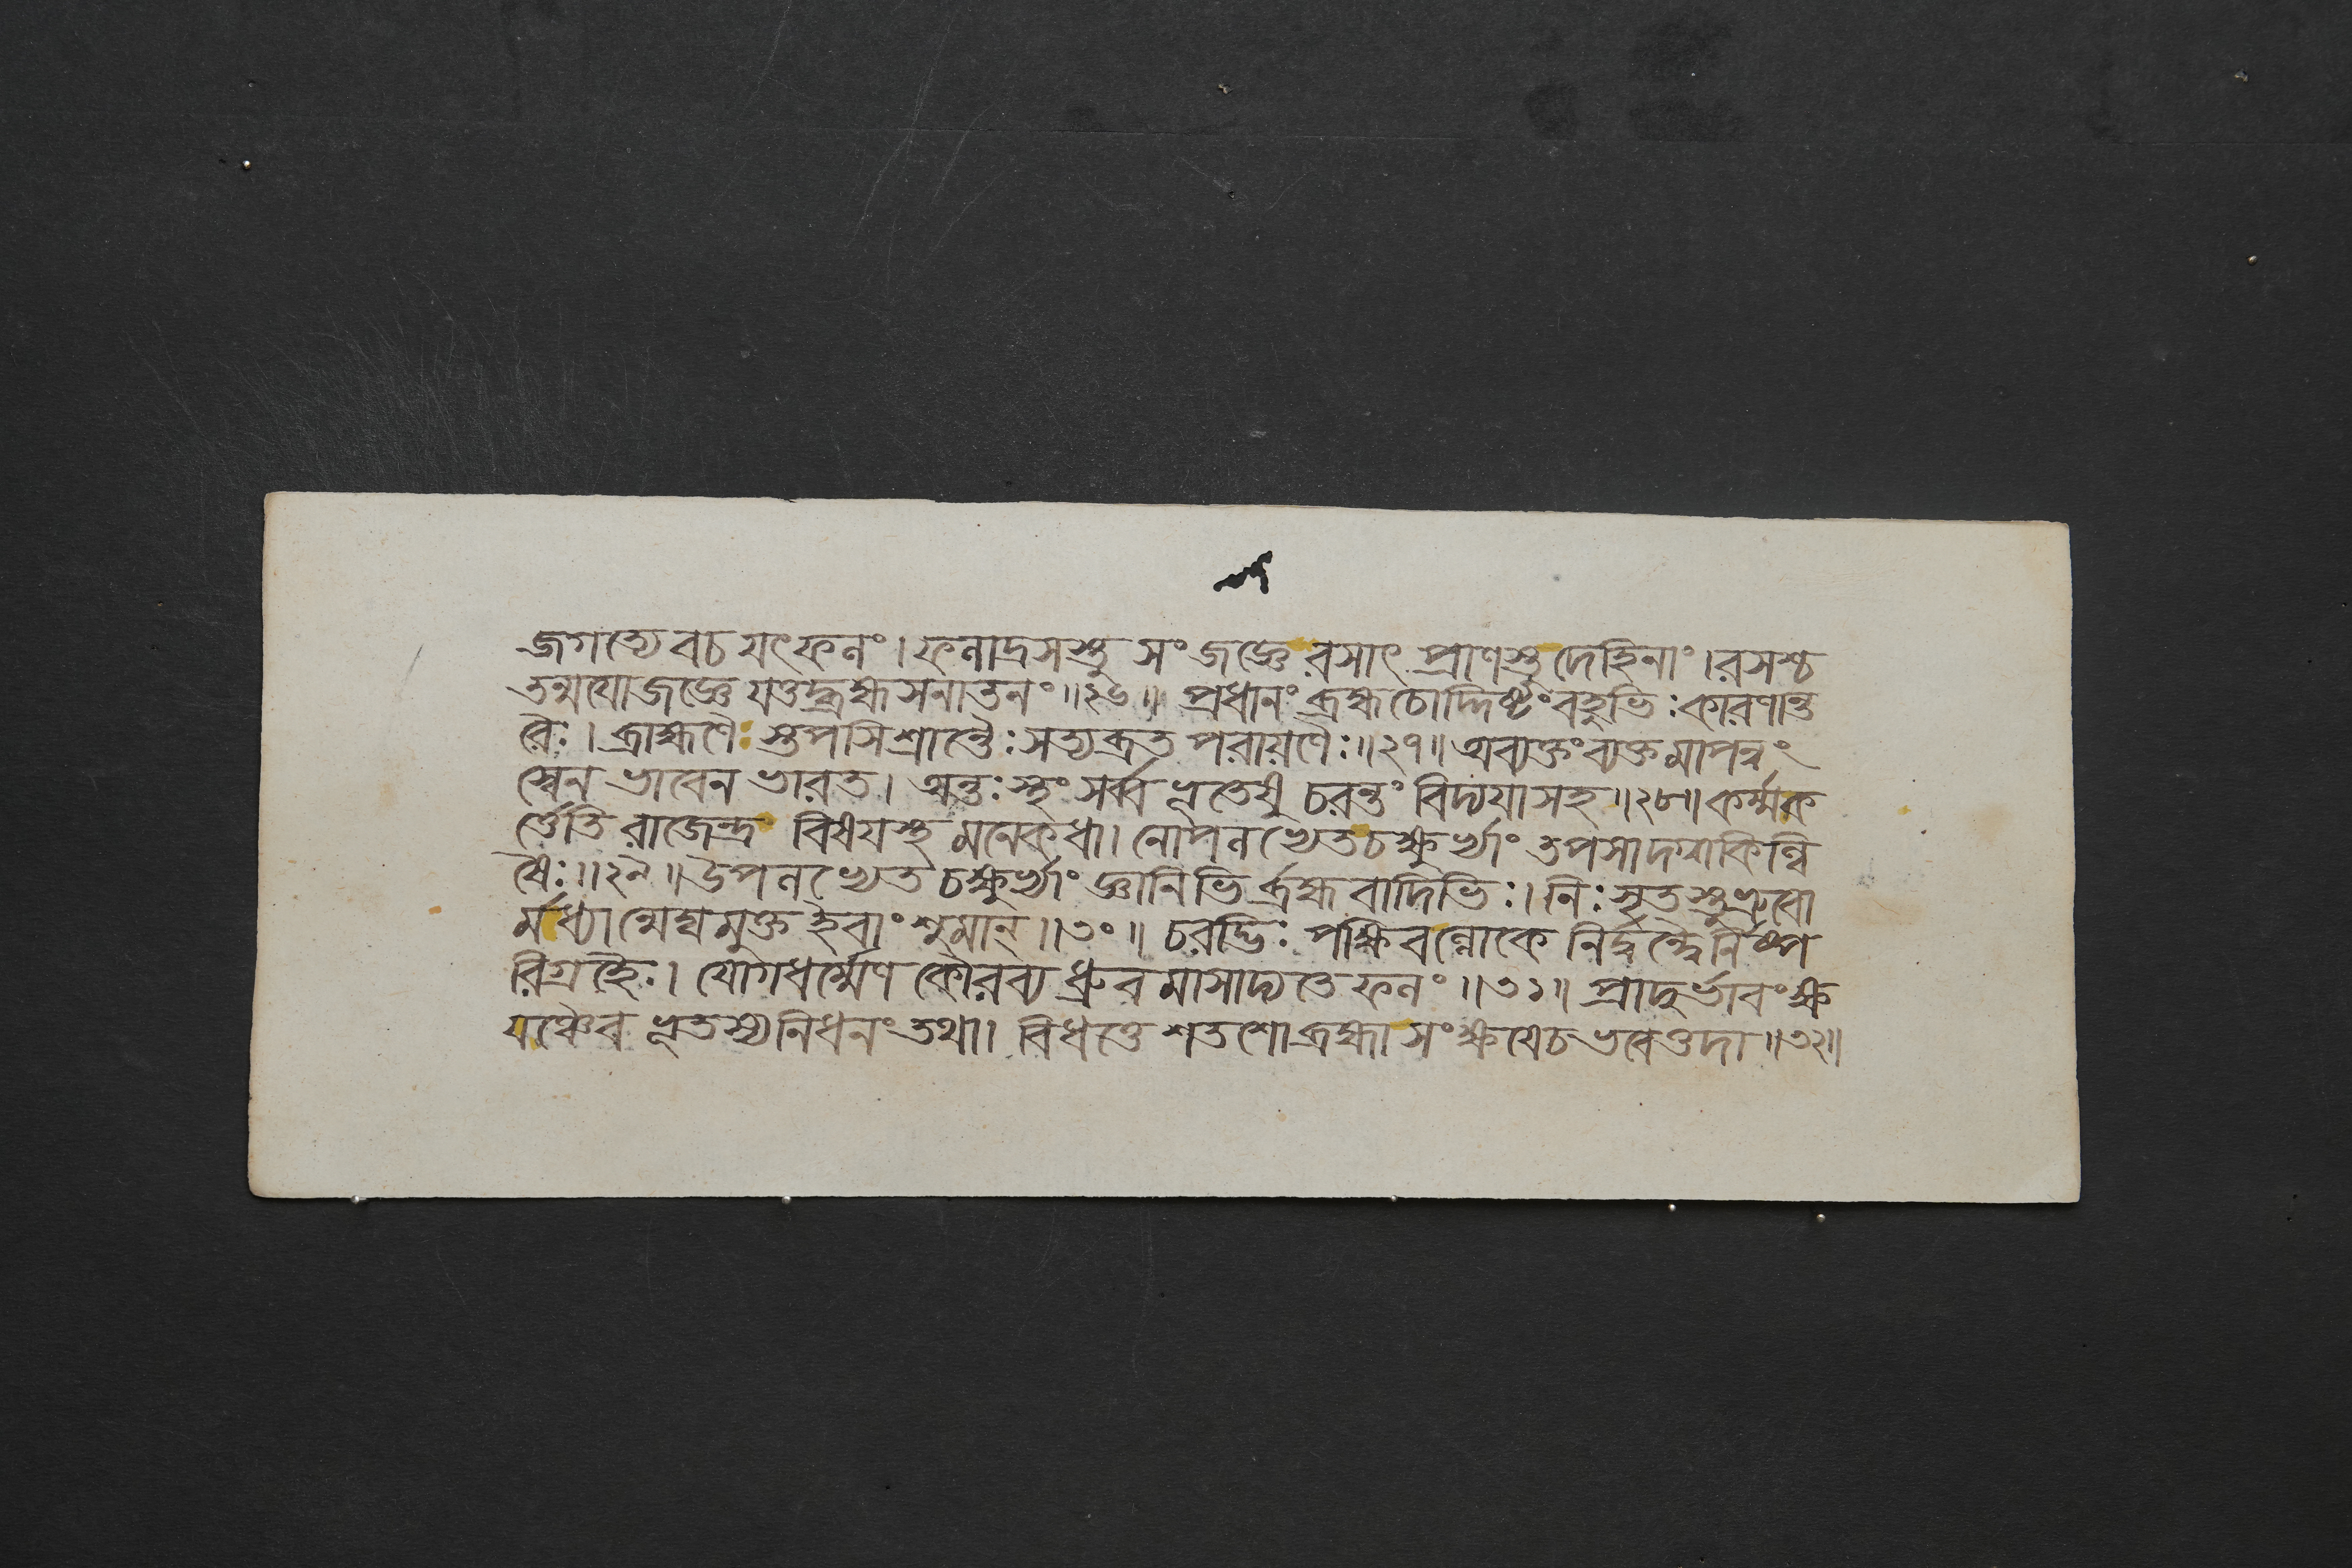 জগত্যেবচ যৎফলং। ফলাদ্রসস্তু সংজজ্ঞে রসাৎ প্রাণস্তু দেহিনাং। রসশ্চ
তন্ময়োজজ্ঞে যত্তদ্ব্রহ্ম সনাতনং॥২৬॥ প্রধানং ব্রহ্মচোদ্দিষ্টং বহুভিঃ কারণান্ত
রৈঃ। ব্রাহ্মণৈঃ স্তপসিশ্রান্তৈঃ সত্যব্রত পরায়ণৈঃ॥২৭॥ অব্যক্তং ব্যক্তমাপন্নং
স্বেন ভাবেন ভারত। অন্তঃস্থং সর্ব্বভূতেষু চরন্তং বিদ্যয়াসহ॥২৮॥ কর্ম্মক
র্ত্তেতি রাজেন্দ্র বিষয়স্থমনেকধা। নোপলভ্যেত চক্ষুর্ভ্যাং তপসাদগ্ধকিল্বি
ষৈঃ॥২৯॥ উপলভ্যেত চক্ষুর্ভ্যাং জ্ঞানিভির্ব্রহ্মবাদিভিঃ। নিঃসৃতস্তু ভ্রুবো
র্মধ্যান্মেঘমুক্ত ইবাংশুমান্॥৩০॥ চরদ্ভিঃ পক্ষিবল্লোকে নির্দ্বন্দ্বৈর্নিষ্প
রিগ্রহৈঃ। যোগধর্ম্মেণ কৌরব্য ধ্রুবমাসাদ্যতে ফলং॥৩১॥ প্রাদুর্ভাবং ক্ষ
য়ঞ্চৈব ভূতস্য নিধনং তথা। বিধত্তে শতশো ব্রহ্মা সংক্ষয়েচ ভবেত্তদা॥৩২॥